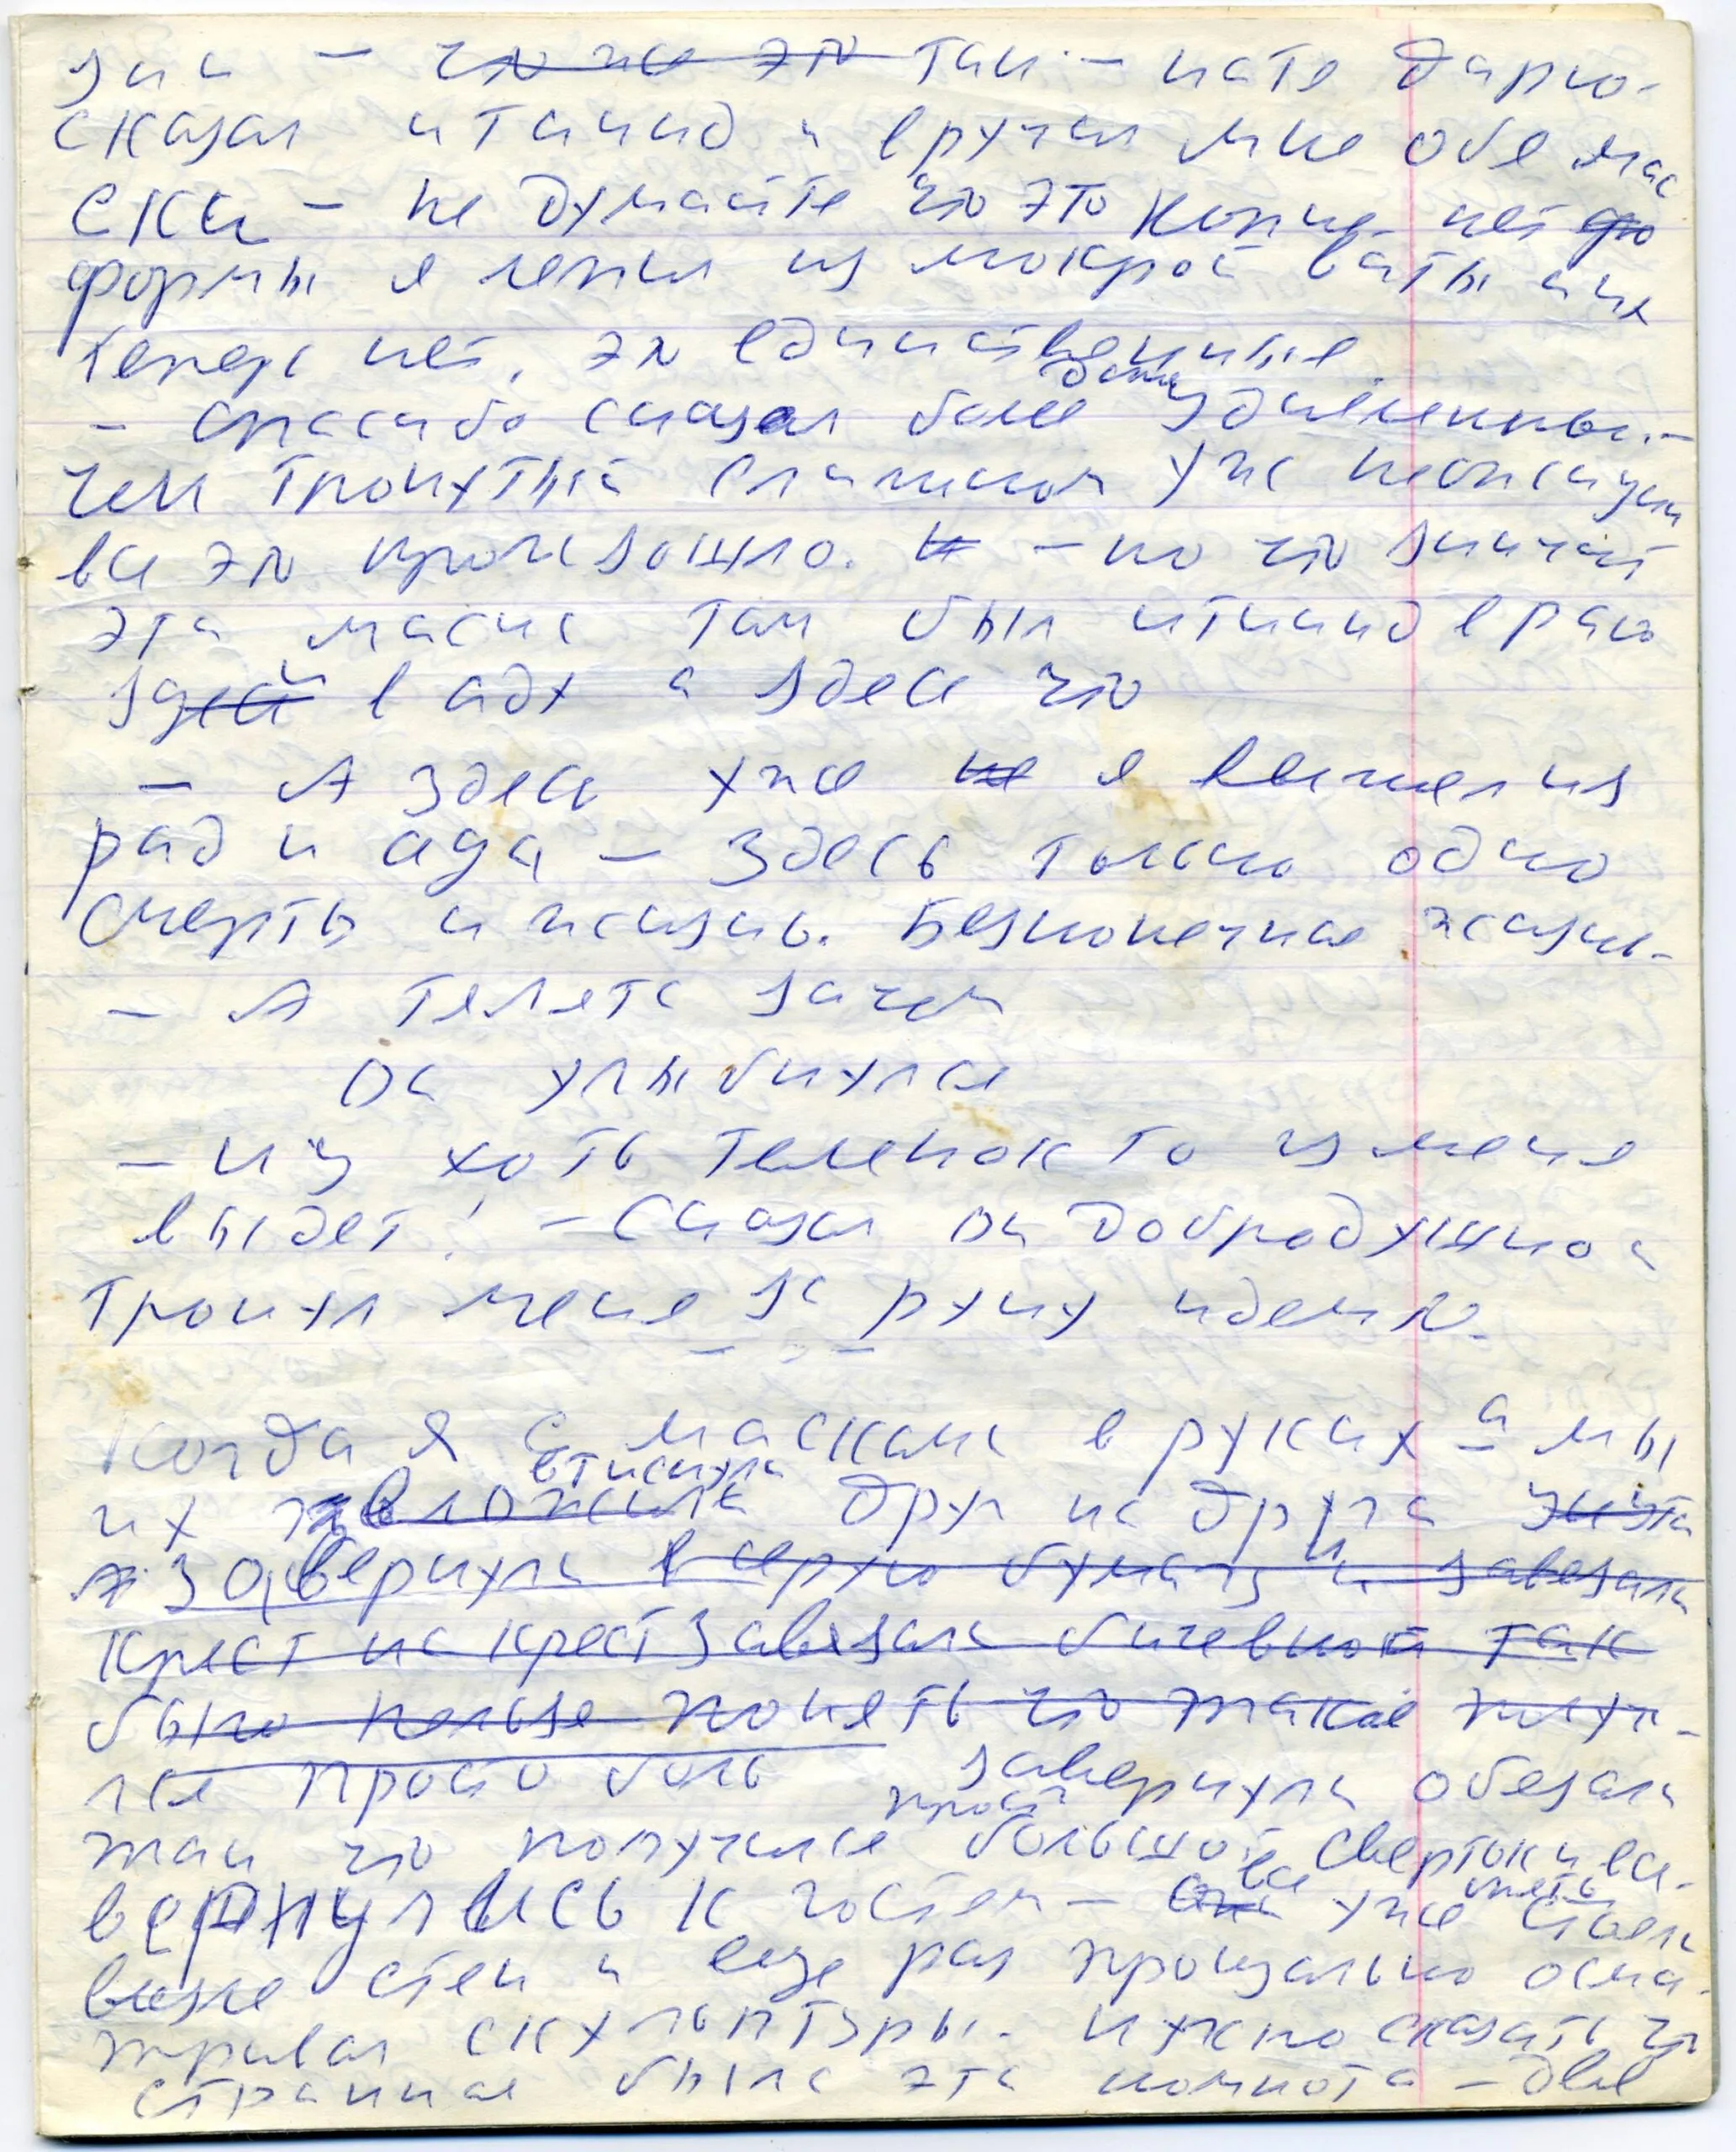 зии – что же это там – нате дарю-
сказал итанид и вручил мне обе мас
ски – не думайте что это копие нет фо
формы я лепил из мокрой ваты и их
теперь нет, это единственные.
– спасибо сказал более даже удивленный-
чем тронутый слишком уж неожидан
все это произошло. Н – но что значит
эта маска там был итанид в раю
здесь в аду а здесь что
– А здесь уже не я вышел из
рад и ада – здесь только одно
смерть и жизнь. Безконечная жизнь.
– А телята зачем
Он улыбнулся
– ну хоть теленок то из меня
выдет! – Сказал он добродушно и
тронул меня за руку идемте.
Когда я с масками в руках – а мы
их вложили втиснули друг на друга
завернули в серую бумагу и завезали
крест на крест завязали бичевкой так
было нельзя понять что такое получ-
лся просто боль завернули обезали
так что получился просто большой сверток и вс.
вернулись к гостем – они все уже опять стоели
возле стен и еще раз прощально осма-
тривал скульптуры. нужно сказать что
странная была эта комнота – две